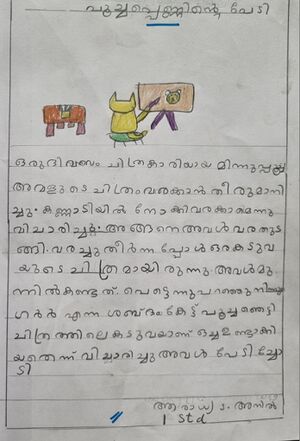 പൂച്ചപ്പെണ്ണിൻ്റെ പേടി
ഒരു ദിവസം ചിത്രകാരിയായ മിന്നുപ്പൂച്ച
അവളുടെ ചിത്രം വരക്കാൻ തീരുമാനി
ച്ചു. കണ്ണാടിയിൽ നോക്കി വരക്കാമെന്നു
വിചാരിച്ചു. അങ്ങനെ അവൾ വരതുട
ങ്ങി. വരച്ചു തീർന്നപ്പോൾ ഒരു കടുവ
യുടെ ചിത്രമായിരുന്നു. അവൾ മു
ന്നിൽ കണ്ടത്. പെട്ടെന്നു പറഞ്ഞു
ഗർർ എന്ന ശബ്ദം കേട്ട് പൂച്ച ഞെട്ടി
ചിത്രത്തിലെ കടുവയാണ് ഒച്ച ഉണ്ടാക്കി
യതെന്ന് വിചാരിച്ചു അവൾ പേടിച്ചോ
ടി
ആരാധ്യ ട. അനിൽ
1 std